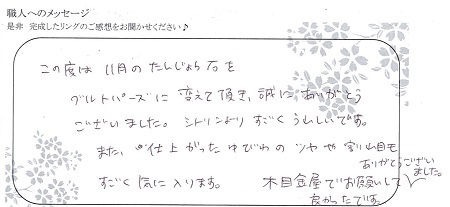 職人へのメッセージ
是非 完成したリングのご感想をお聞かせください♪
この度は 11月のたんじょう石を
ブルートパーズに 変えて頂き、誠に ありがとう
ございました。シトリンより すごく うれしいです。
また、仕上がった ゆびわの ツヤや 割り目も
すごく 気に入ります。
木目金屋でお願いして
良かったです。
ありがとうござい
ました。